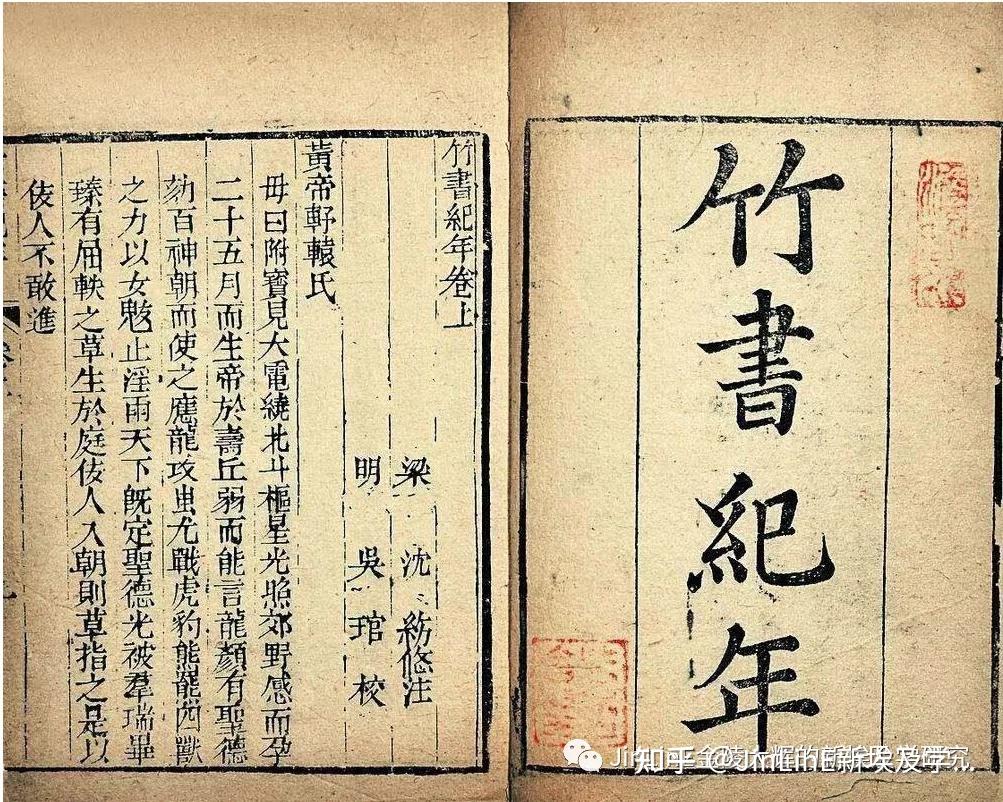 竹書紀年
竹書紀年卷上
梁 沈 注
明 吳 琯 校
黃帝軒轅氏
母曰附寶見大電繞北斗樞星光照郊野感而孕
二十五月而生帝於壽丘弱而能言龍顏有聖德
劾百神朝而使之應龍攻蚩尤戰虎豹熊羆四獸
之力以女魃止淫雨天下既定聖德光被羣瑞畢
臻有屈軼之草生於庭佞人入朝則草指之是以
佞人不敢進
知乎